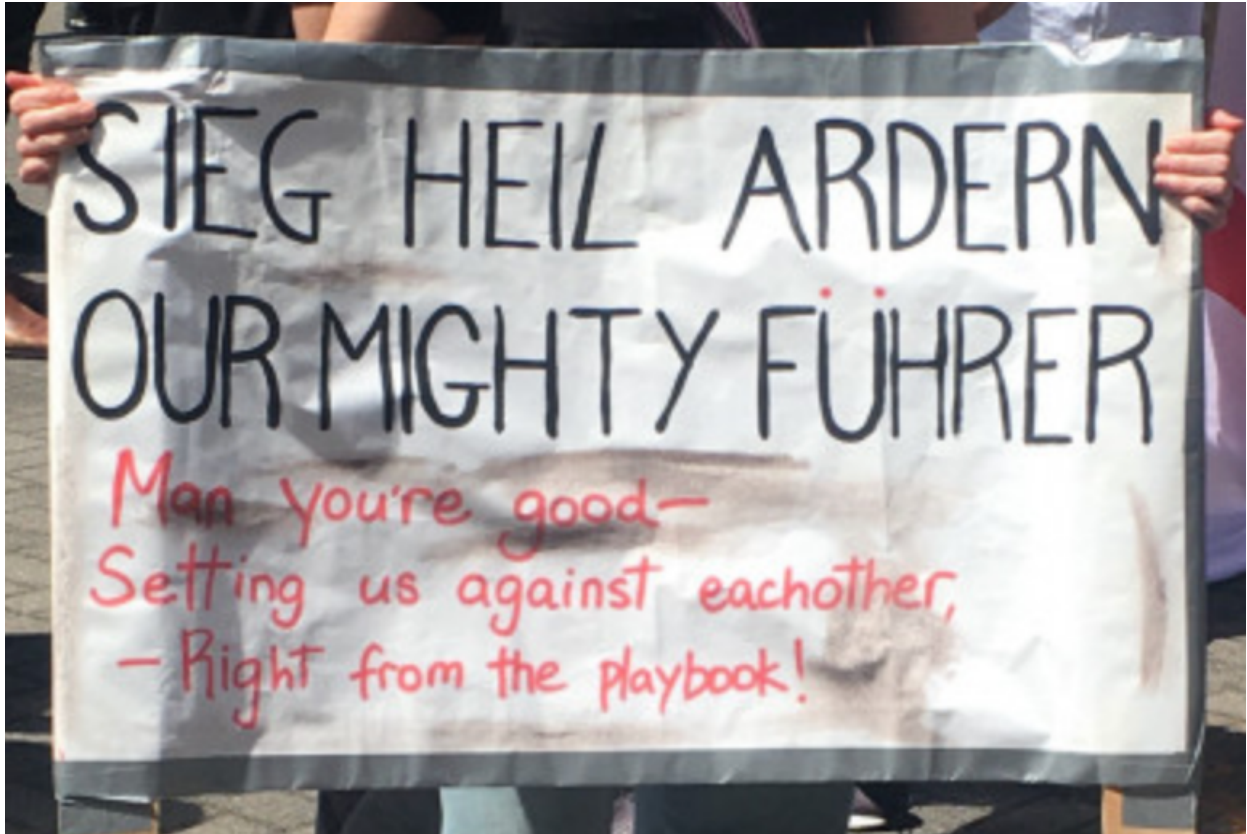 SIEG HEIL ARDERN
OUR MIGHTY FÜHRER
Man you're good—
Setting us against eachother,
— Right from the playbook!